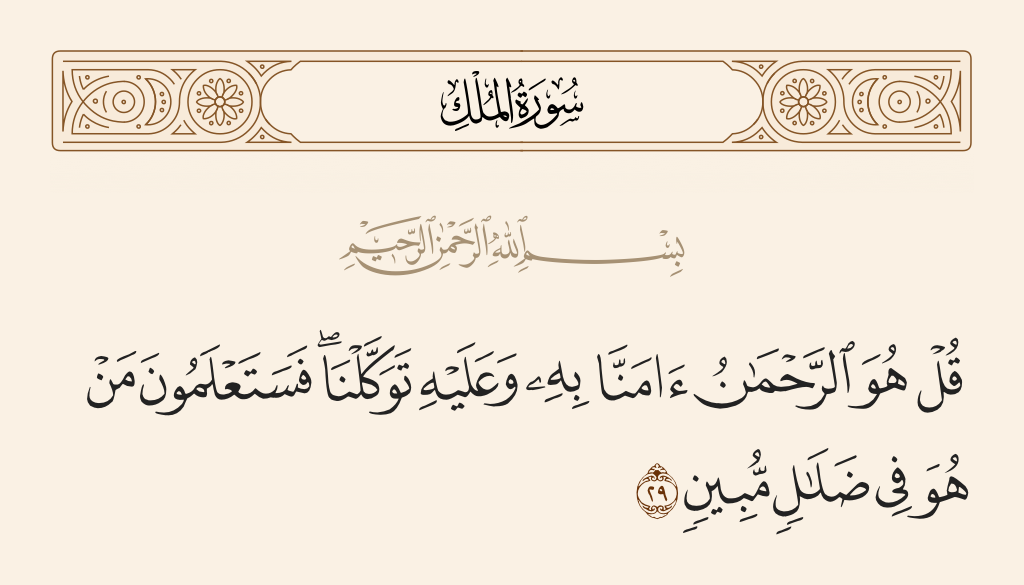 سُورَةُ الْمُلْكِ
بِسْمِ ٱللَّهِ ٱلرَّحْمَٰنِ ٱلرَّحِيمِ
قُلْ هُوَ ٱلرَّحْمَٰنُ ءَامَنَّا بِهِۦ وَعَلَيْهِ تَوَكَّلْنَا ۖ فَسَتَعْلَمُونَ مَنْ
هُوَ فِى ضَلَٰلٍ مُّبِينٍ ٢٩